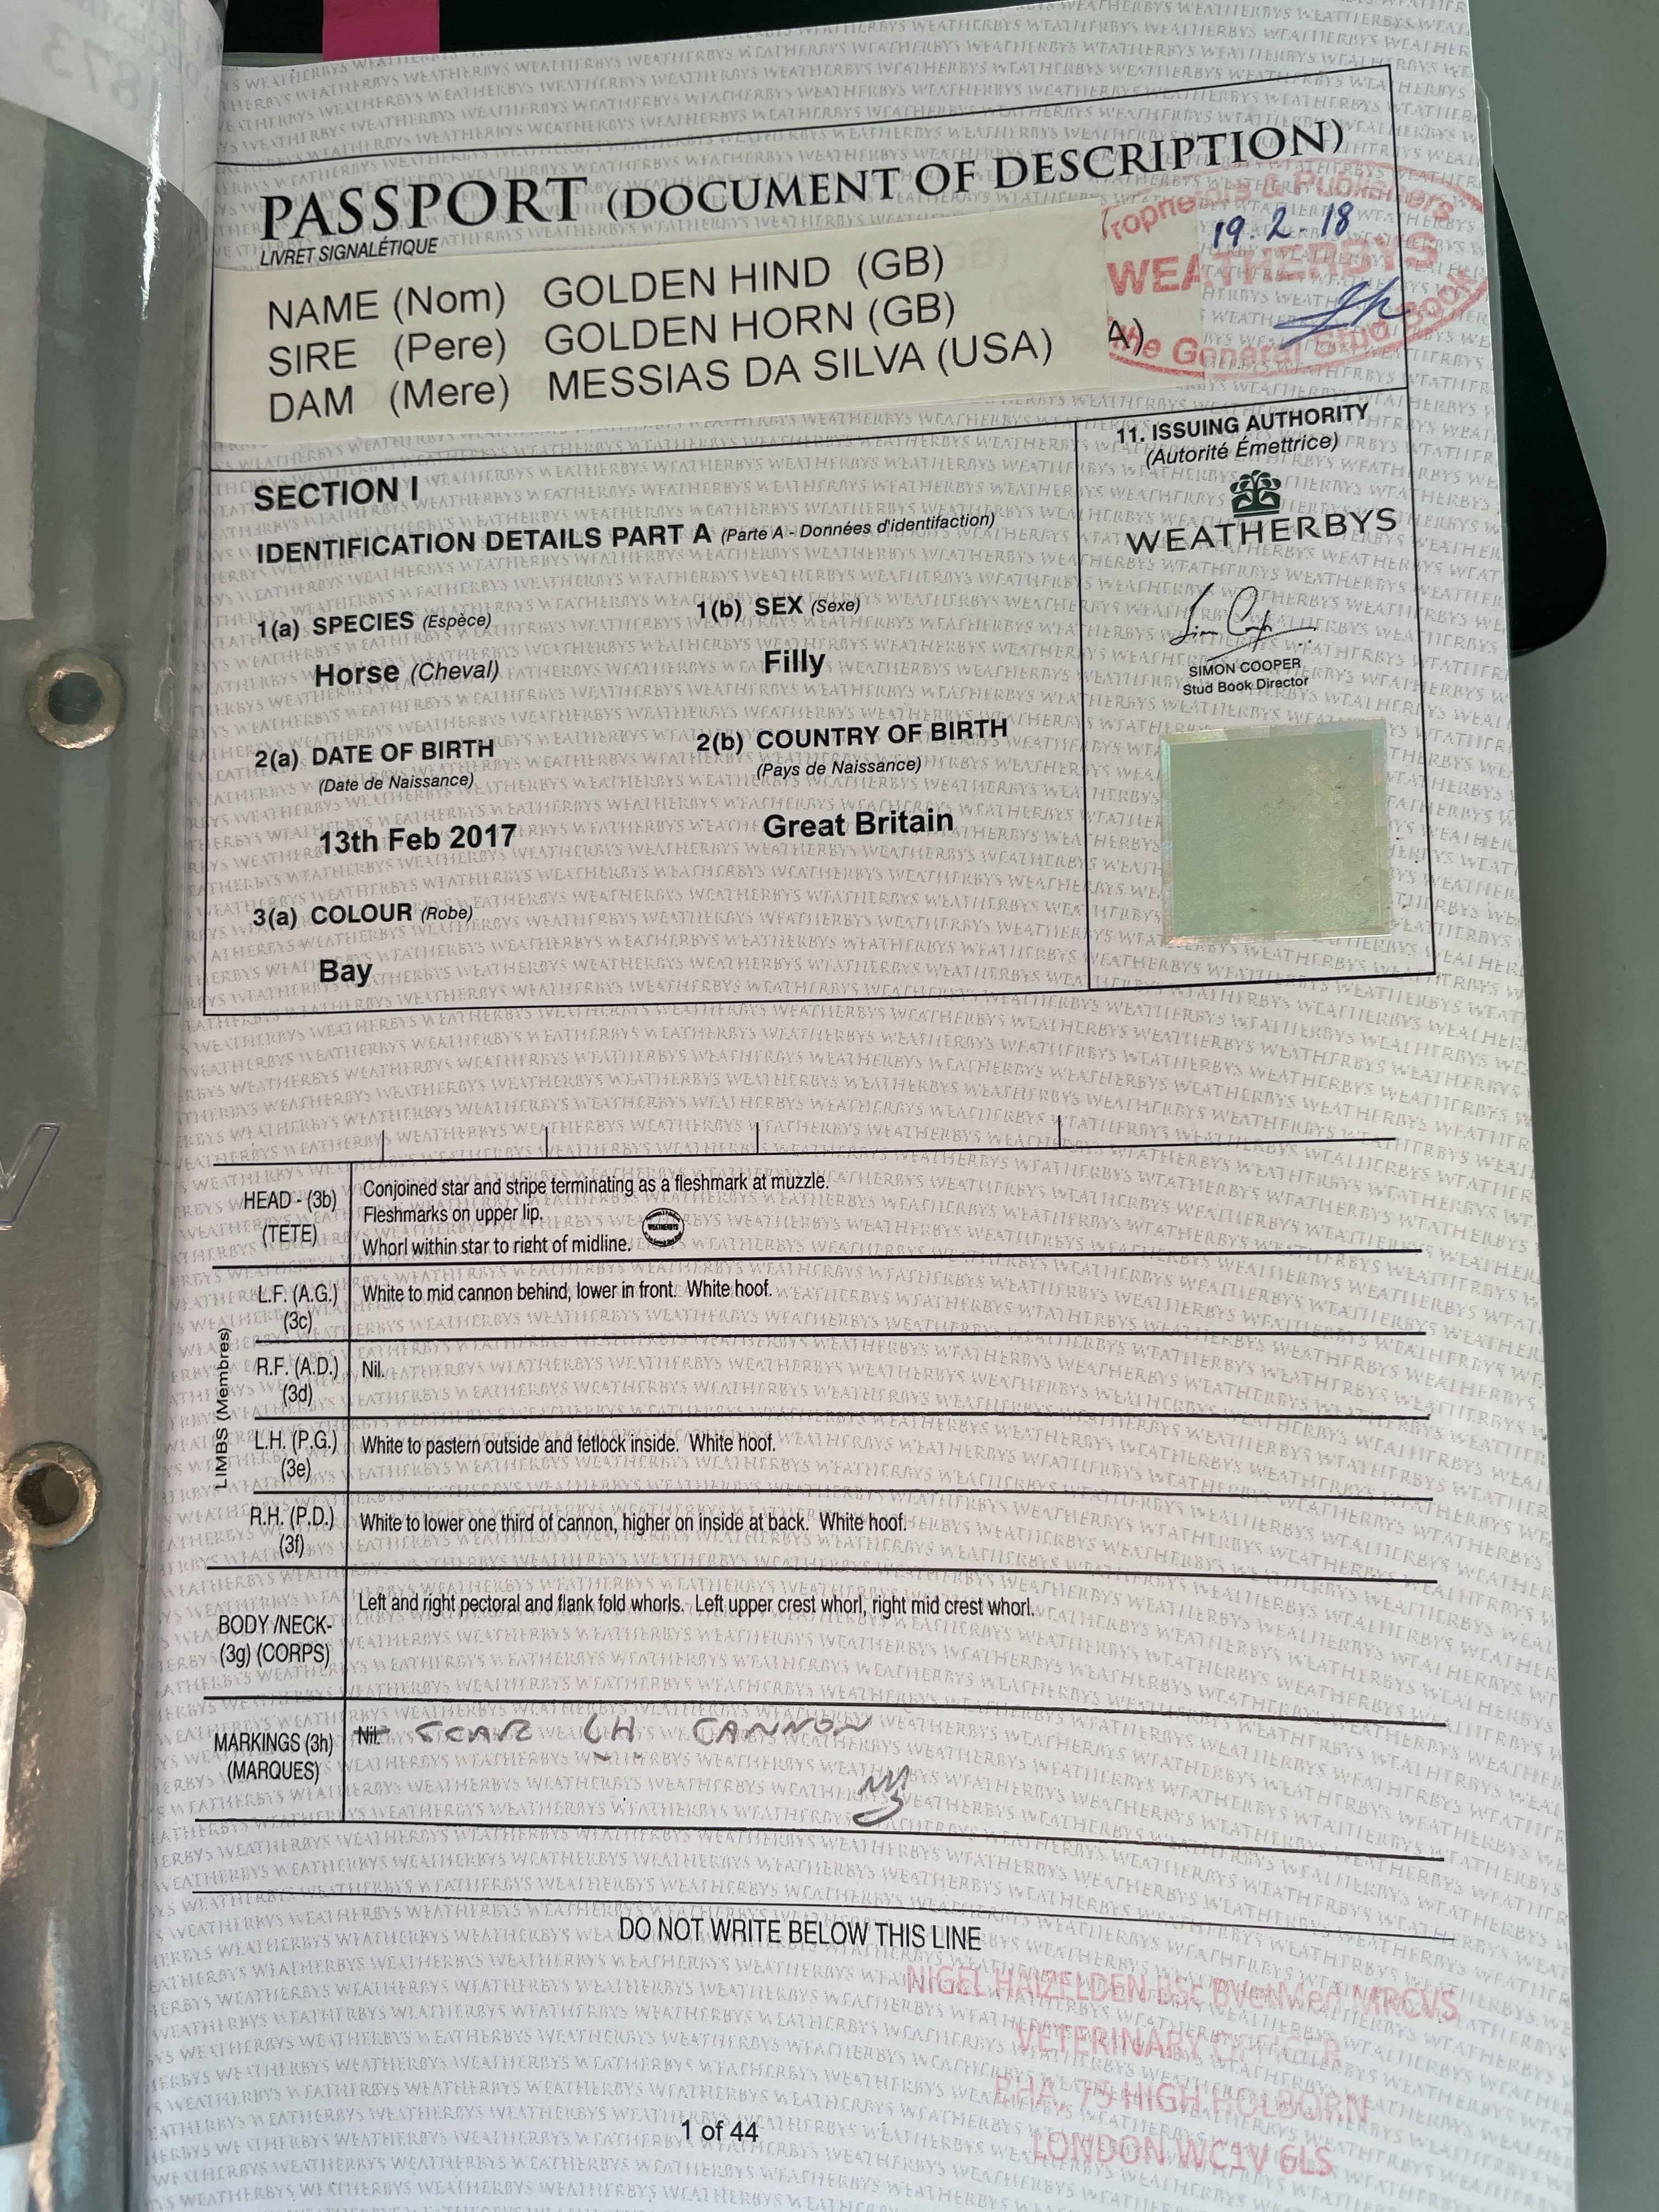 PASSPORT (DOCUMENT OF DESCRIPTION)
LIVRET SIGNALÉTIQUE
NAME (Nom) GOLDEN HIND (GB)
SIRE (Pere) GOLDEN HORN (GB)
DAM (Mere) MESSIAS DA SILVA (USA)
A)
19.2.18
WEATHERBYS
the General Stud Book
SECTION I
IDENTIFICATION DETAILS PART A (Parte A - Données d'identifaction)
1(a) SPECIES (Espèce)
Horse (Cheval)
1(b) SEX (Sexe)
Filly
2(a) DATE OF BIRTH
(Date de Naissance)
13th Feb 2017
2(b) COUNTRY OF BIRTH
(Pays de Naissance)
Great Britain
3(a) COLOUR (Robe)
Bay
11. ISSUING AUTHORITY
(Autorité Émettrice)
WEATHERBYS
SIMON COOPER
Stud Book Director
HEAD - (3b)
(TETE)
Conjoined star and stripe terminating as a fleshmark at muzzle.
Fleshmarks on upper lip.
Whorl within star to right of midline.
WEATHERBYS
LIMBS (Membres)
L.F. (A.G.)
(3c)
White to mid cannon behind, lower in front. White hoof.
R.F. (A.D.)
(3d)
Nil.
L.H. (P.G.)
(3e)
White to pastern outside and fetlock inside. White hoof.
R.H. (P.D.)
(3f)
White to lower one third of cannon, higher on inside at back. White hoof.
BODY /NECK-
(3g) (CORPS)
Left and right pectoral and flank fold whorls. Left upper crest whorl, right mid crest whorl.
MARKINGS (3h)
(MARQUES)
Nil. SCAR LH CANNON
DO NOT WRITE BELOW THIS LINE
NIGEL HAIZELDEN BSc BVetMed MRCVS
VETERINARY OFFICER
BHA, 75 HIGH HOLBORN
LONDON WC1V 6LS
1 of 44